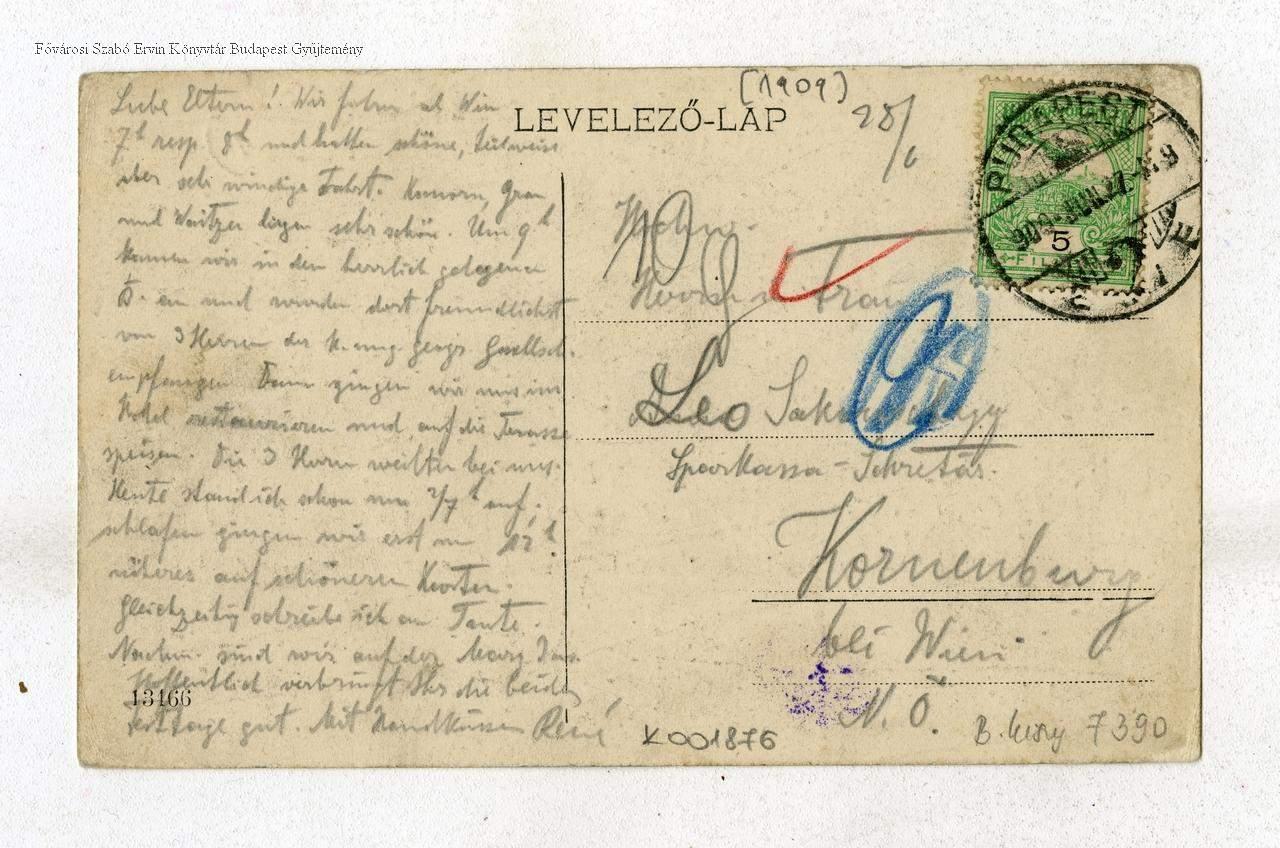 Fővárosi Szabó Ervin Könyvtár Budapest Gyűjtemény
[1909]
LEVELEZŐ-LAP
28/6
BUDAPEST
5
FIL
Liebe Eltern! Wir fuhren ab Wien
7h resp 8h und hatten schöne, teilweise
aber sehr windige Fahrt. Komorn, Gran
und Waitzen liegen sehr schön. Um 9h
kamen wir in dem herrlich gelegenen
B. an und wurden dort freundlichst
von 3 Herren der k. ung. geogr. Gesellsch.
empfangen. Dann gingen wir uns im
Hotel restaurieren und auf die Terasse
speisen. Die 3 Herrn weilten bei uns.
Heute stand ich schon um 7h auf,
schlafen gingen wir erst um 12h
näheres auf schöneren Karten.
Gleichzeitig schreibe ich an Tante.
Nachm. sind wir auf der Marg. Ins.
Hoffentlich verbringt Ihr die beiden
Festtage gut. Mit Handküssen René
13166
Herrn u Frau
Leo
Sparkassa-Sekretär.
Kornenburg
bei Wien
N. Ö.
K001876
B. 7390